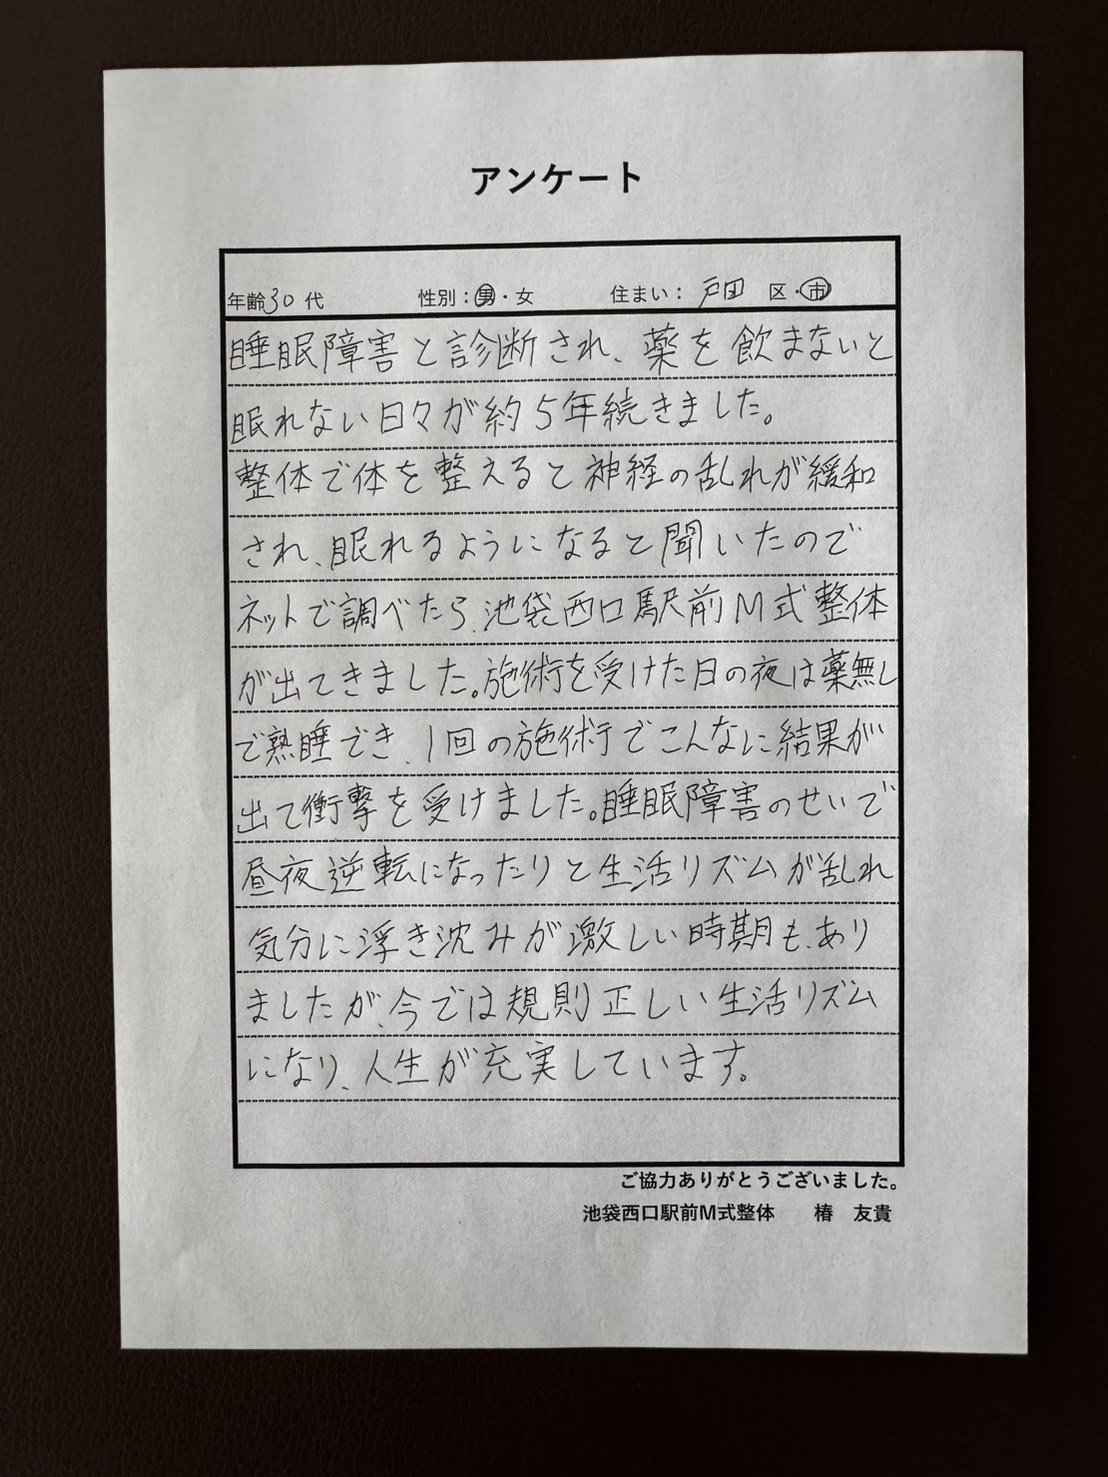 アンケート
年齢30代 性別：男・女 住まい：戸田 区・市
睡眠障害と診断され、薬を飲まないと
眠れない日々が約5年続きました。
整体で体を整えると神経の乱れが緩和
され、眠れるようになると聞いたので
ネットで調べたら、池袋西口駅前M式整体
が出てきました。施術を受けた日の夜は薬無し
で熟睡でき、1回の施術でこんなに結果が
出て衝撃を受けました。睡眠障害のせいで
昼夜逆転になったりと生活リズムが乱れ
気分に浮き沈みが激しい時期も、あり
ましたが、今では規則正しい生活リズム
になり、人生が充実しています。
ご協力ありがとうございました。
池袋西口駅前M式整体 椿 友貴